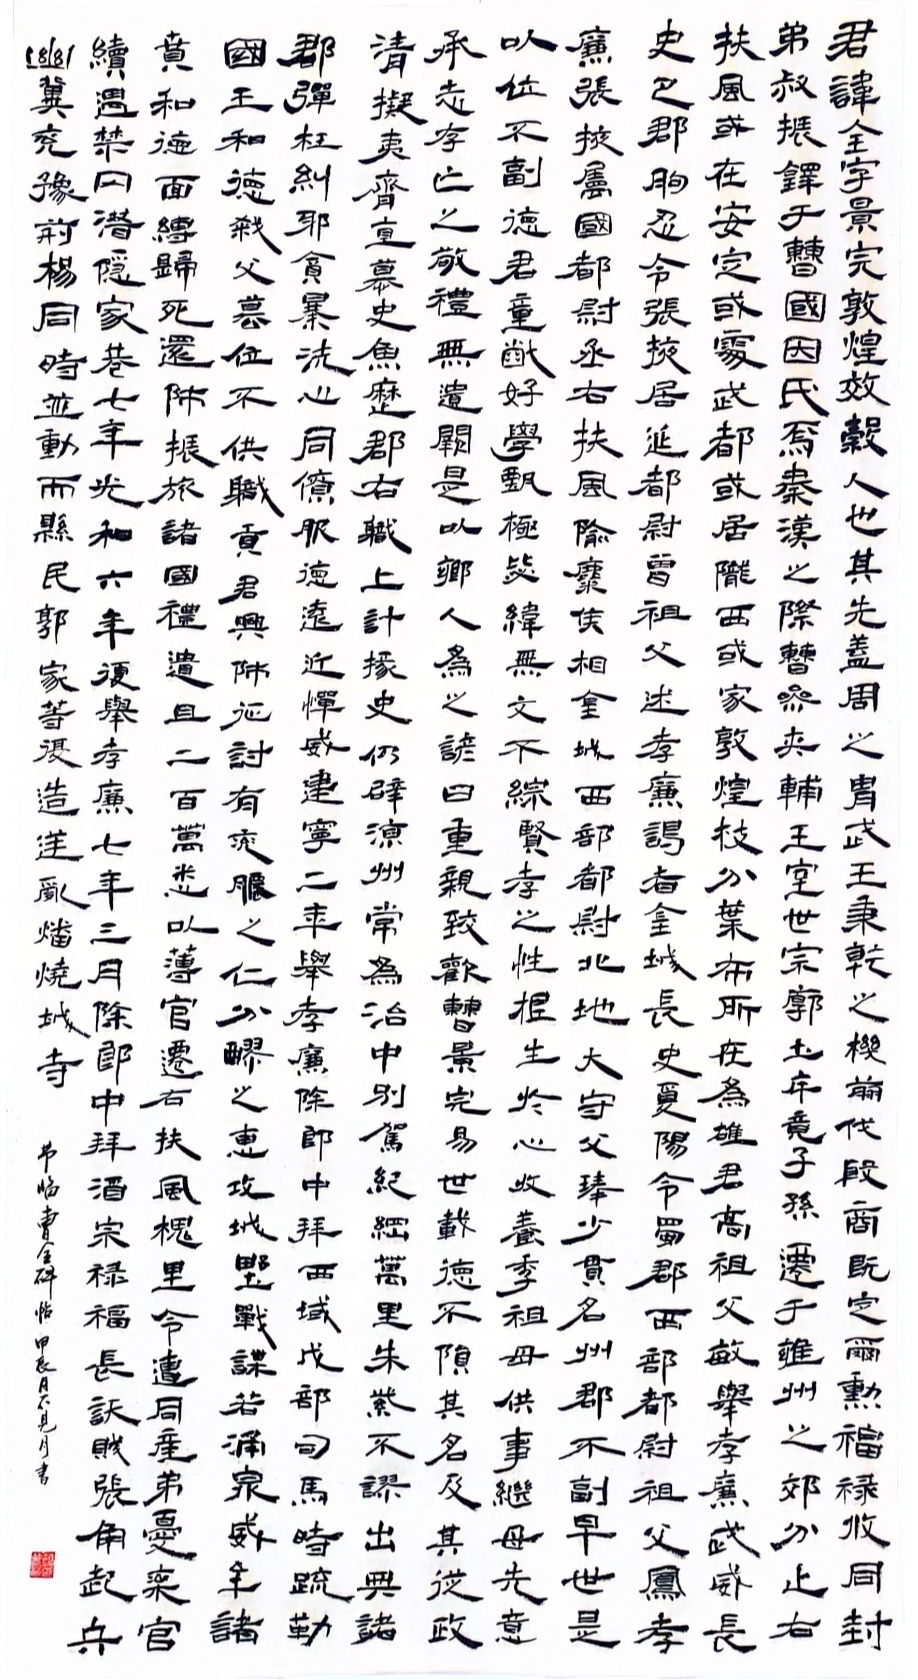 君諱全字景完敦煌效穀人也其先蓋周之胄武王秉乾之機翦伐殷商既定爾勳福祿攸同封
弟叔振鐸于曹國因氏焉秦漢之際曹參夾輔王室世宗廓土斥竟子孫遷于雍州之郊分止右
扶風或在安定或處武都或居隴西或家敦煌枝分葉布所在為雄君高祖父敏舉孝廉武威長
史巴郡朐忍令張掖居延都尉曾祖父述孝廉謁者金城長史夏陽令蜀郡西部都尉祖父鳳孝
廉張掖屬國都尉丞右扶風隃麋侯相金城西部都尉北地大守父琫少貫名州郡不副早世是
以位不副德君童齔好學甄極毖緯無文不綜賢孝之性根生於心收養季祖母供事繼母先意
承志存亡之敬禮無遺闕是以鄉人為之諺曰重親致歡曹景完易世載德不隕其名及其從政
清擬夷齊直慕史魚歷郡右職上計掾史仍辟涼州常為治中別駕紀綱萬里朱紫不謬出典諸
郡彈枉糾邪貪暴洗心同僚服德遠近憚威建寧二年舉孝廉除郎中拜西域戊部司馬時疏勒
國王和德弒父篡位不供職貢君興師征討有兗膿之仁分醪之惠攻城野戰謀若涌泉威牟諸
賁和德面縛歸死還師振旅諸國禮遺且二百萬悉以薄官遷右扶風槐里令遭同產弟憂棄官
續遇禁冈潛隱家巷七年光和六年復舉孝廉七年三月除郎中拜酒泉祿福長訞賊張角起兵
幽冀兗豫荊楊同時並動而縣民郭家等復造逆亂燔燒城寺
节临曹全碑帖甲辰月不見月書